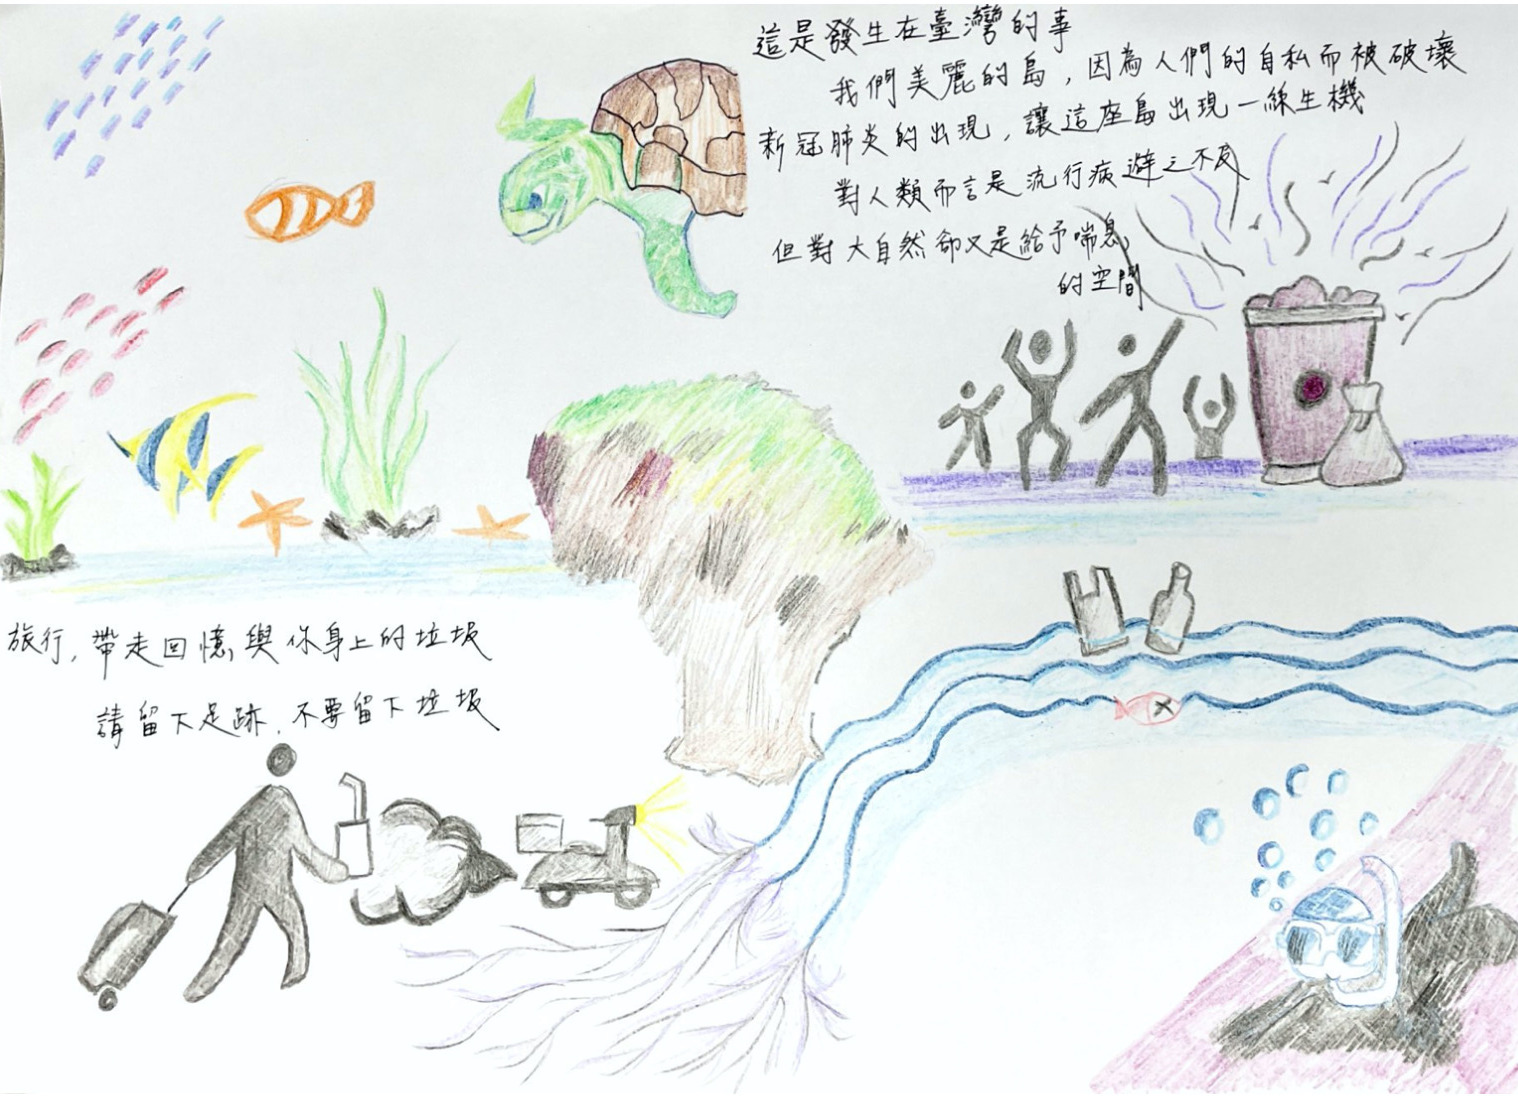 這是發生在臺灣的事
我們美麗的島，因為人們的自私而被破壞
新冠肺炎的出現，讓這座島出現一絲生機
對人類而言是流行病避之不及
但對大自然卻又是給予喘息
的空間
旅行，帶走回憶與你身上的垃圾
請留下足跡，不要留下垃圾